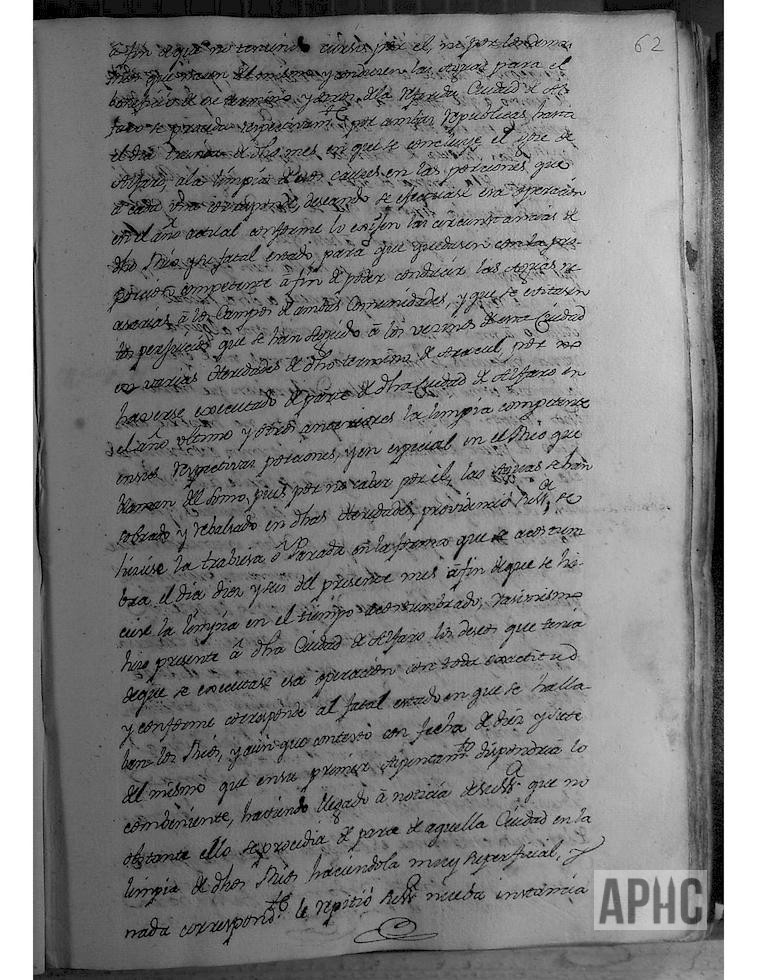 62
â fin de que no teniendo curso por el, ni por los dema
que nacen del mismo y conducen las Aguas para el
beneficio de ese termino y otros de la referida Ciudad de Al-
faro se proceda respectivam.te por ambas Republicas hasta
el dia treinta de dho mes en que se concluye el que de
Alfaro, à la limpia de esos cauzes en las porciones que
à cada una corresponde, deseando se efectuase esa operacion
en el año actual conforme lo exijen las circunstancias de
dho Rio y su fatal estado para que quedasen con la pro-
porcion competente â fin de poder conducir las Aguas ne
cesarias â los Campos de ambas Comunidades, y que se evitasen
los perjuicios que se han seguido â los vecinos de esta Ciudad
en varias eredades de dho termino de Araciel, por no
haverse executado de parte de dha Ciudad de Alfaro en
el año ultimo y otros anteriores la limpia competente
en sus respectivas porciones, y en especial en el Rio que
llaman del Somo, pues por no caber por él, las Aguas se han
sobrado y rebalsado en dhas eredades, providenció su S.a se
hiciese la trabiesa ô Parada en la forma que se acostum
bra el dia diez y seis del presente mes â fin de que se hi-
ciese la limpia en el tiempo acostumbrado, y asimismo
hizo presente â dha Ciudad de Alfaro los deseos que tenia
de que se executase esa operacion con toda exactitud
y conforme corresponde al fatal estado en que se halla-
ban los Rios, y aunque contextó con fecha de diez y siete
del mismo que en su primer Ayuntam.to dispondria lo
combeniente, haviendo llegado â noticia de su S.a que no
obstante ello se procedia de parte de aquella Ciudad en la
limpia de dhos Rios haciendola muy superficial, y
nada correspond.te le repitió su S.a nueba instancia
APHC